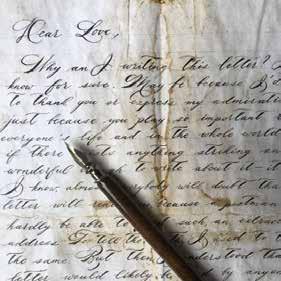 Dear Love,
Why am I writing this letter? I
know for sure. May be because I'd
to thank you or express my admiration
just because you play so important
everyone's life and in the whole world
if there anything striking an
wonderful to write about it
I know, almost everybody will doubt that
letter will because postman
hardly be able to find such an
address. To tell the I used to
the same. But then understood tha
letter would likely be by anyone